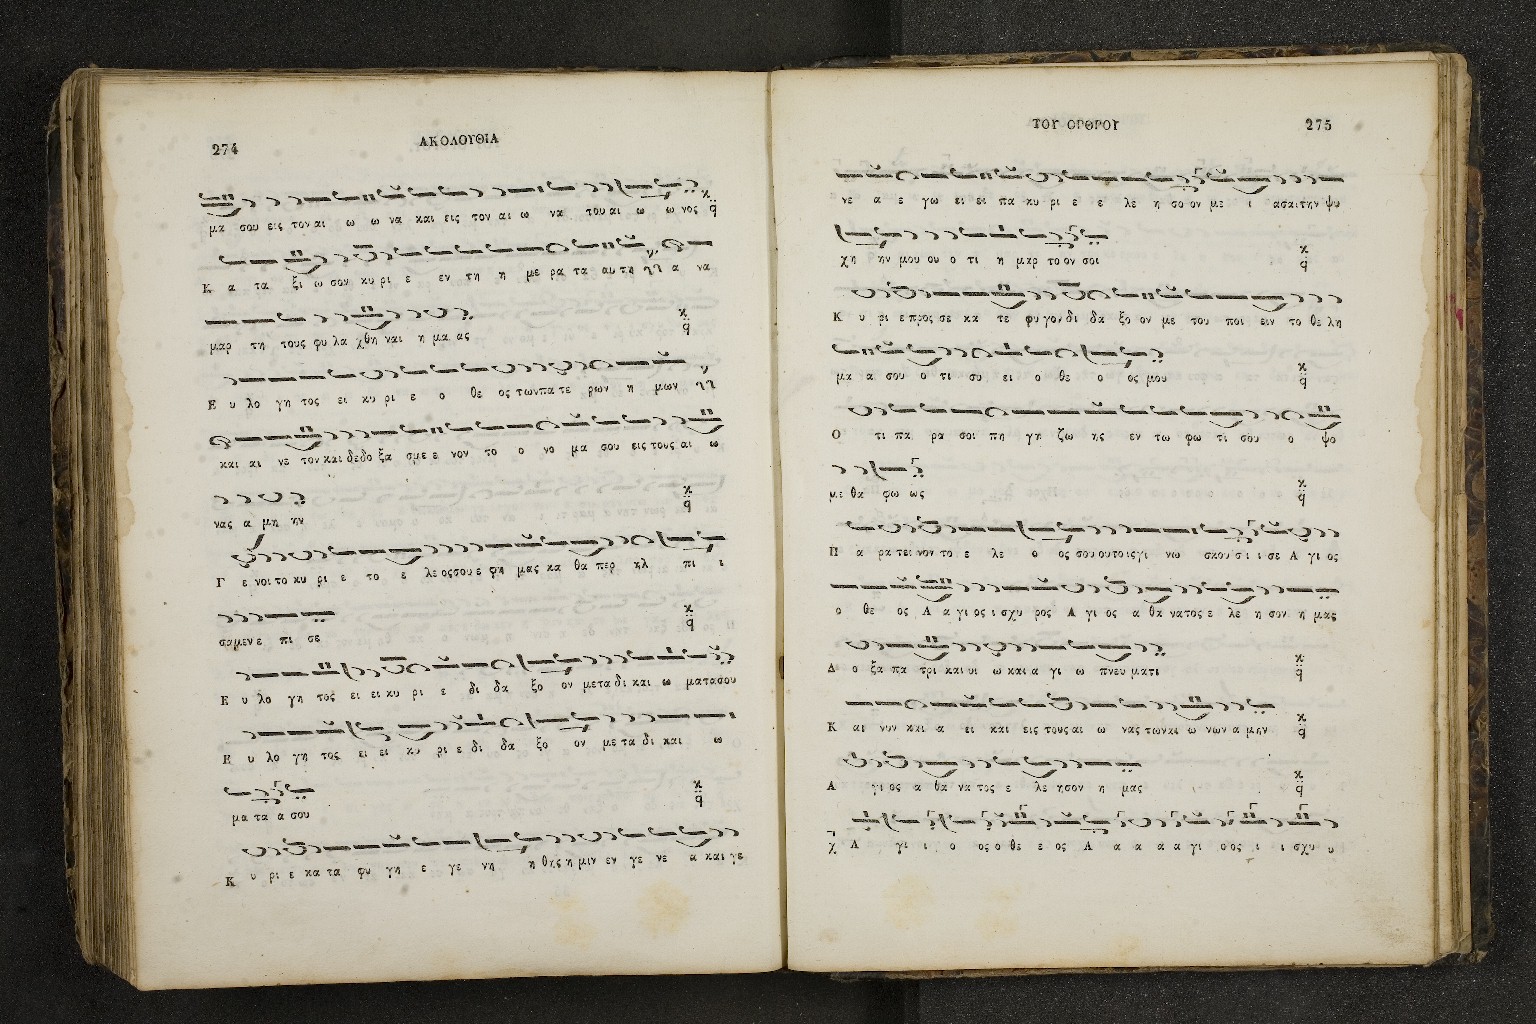 274
ΑΚΟΛΟΥΘΙΑ
μα σου εις τον αι ω ω να και εις τον αι ω να του αι ω ω νος
Κ α τα ξι ω σον κυ ρι ε εν τη η με ρα τα αυ τη α να
μαρ τη τους φυ λα χθη ναι η μα ας
Ε υ λο γη τος ει κυ ρι ε ο θε ος των πα τε ρων η μων
και αι νε τον και δεδο ξα σμε ε νον το ο νο μα σου εις τους αι ω
νας α μη ην
Γ ε νοι το κυ ρι ε το ε λε ος σου ε φη μας κα θα περ ηλ πι ι
σαμεν ε πι σε
Ε υ λο γη τος ει ει κυ ρι ε δι δα ξο ον με τα δι και ω ματα σου
Ε υ λο γη τος ει ει κυ ρι ε δι δα ξο ον με τα δι και ω
μα τα α σου
Κ υ ρι ε κα τα φυ γη ε γε νη η θης η μιν εν γε νε α και γε
ΤΟΥ ΟΡΘΡΟΥ
275
νε α ε γω ει ει πα κυ ρι ε ε λε η σο ον με ι ασαι την ψυ
χη ην μου ου ο τι η μαρ το ον σοι
Κ υ ρι ε προς σε κα τε φυ γον δι δα ξο ον με του ποι ειν το θε λη
μα α σου ο τι συ ει ο θε ο ος μου
Ο τι πα ρα σοι πη γη ζω ης εν τω φω τι σου ο ψο
με θα φω ως
Π α ρα τει νον το ε λε ο ος σου ου τοις γι νω σκου σι ι σε Α γι ος
ο θε ος Α α γι ος ι σχυ ρος Α γι ος α θα νατος ε λε η σον η μας
Δ ο ξα πα τρι και υι ω και α γι ω πνευ ματι
Κ αι νυν και α ει και εις τους αι ω νας των αι ω νων α μην
Α γι ος α θα να τος ε λε ησον η μας
Α γι ι ο ος ο θε ε ος Α α α α α γι ο ος ι ι σχυ υ